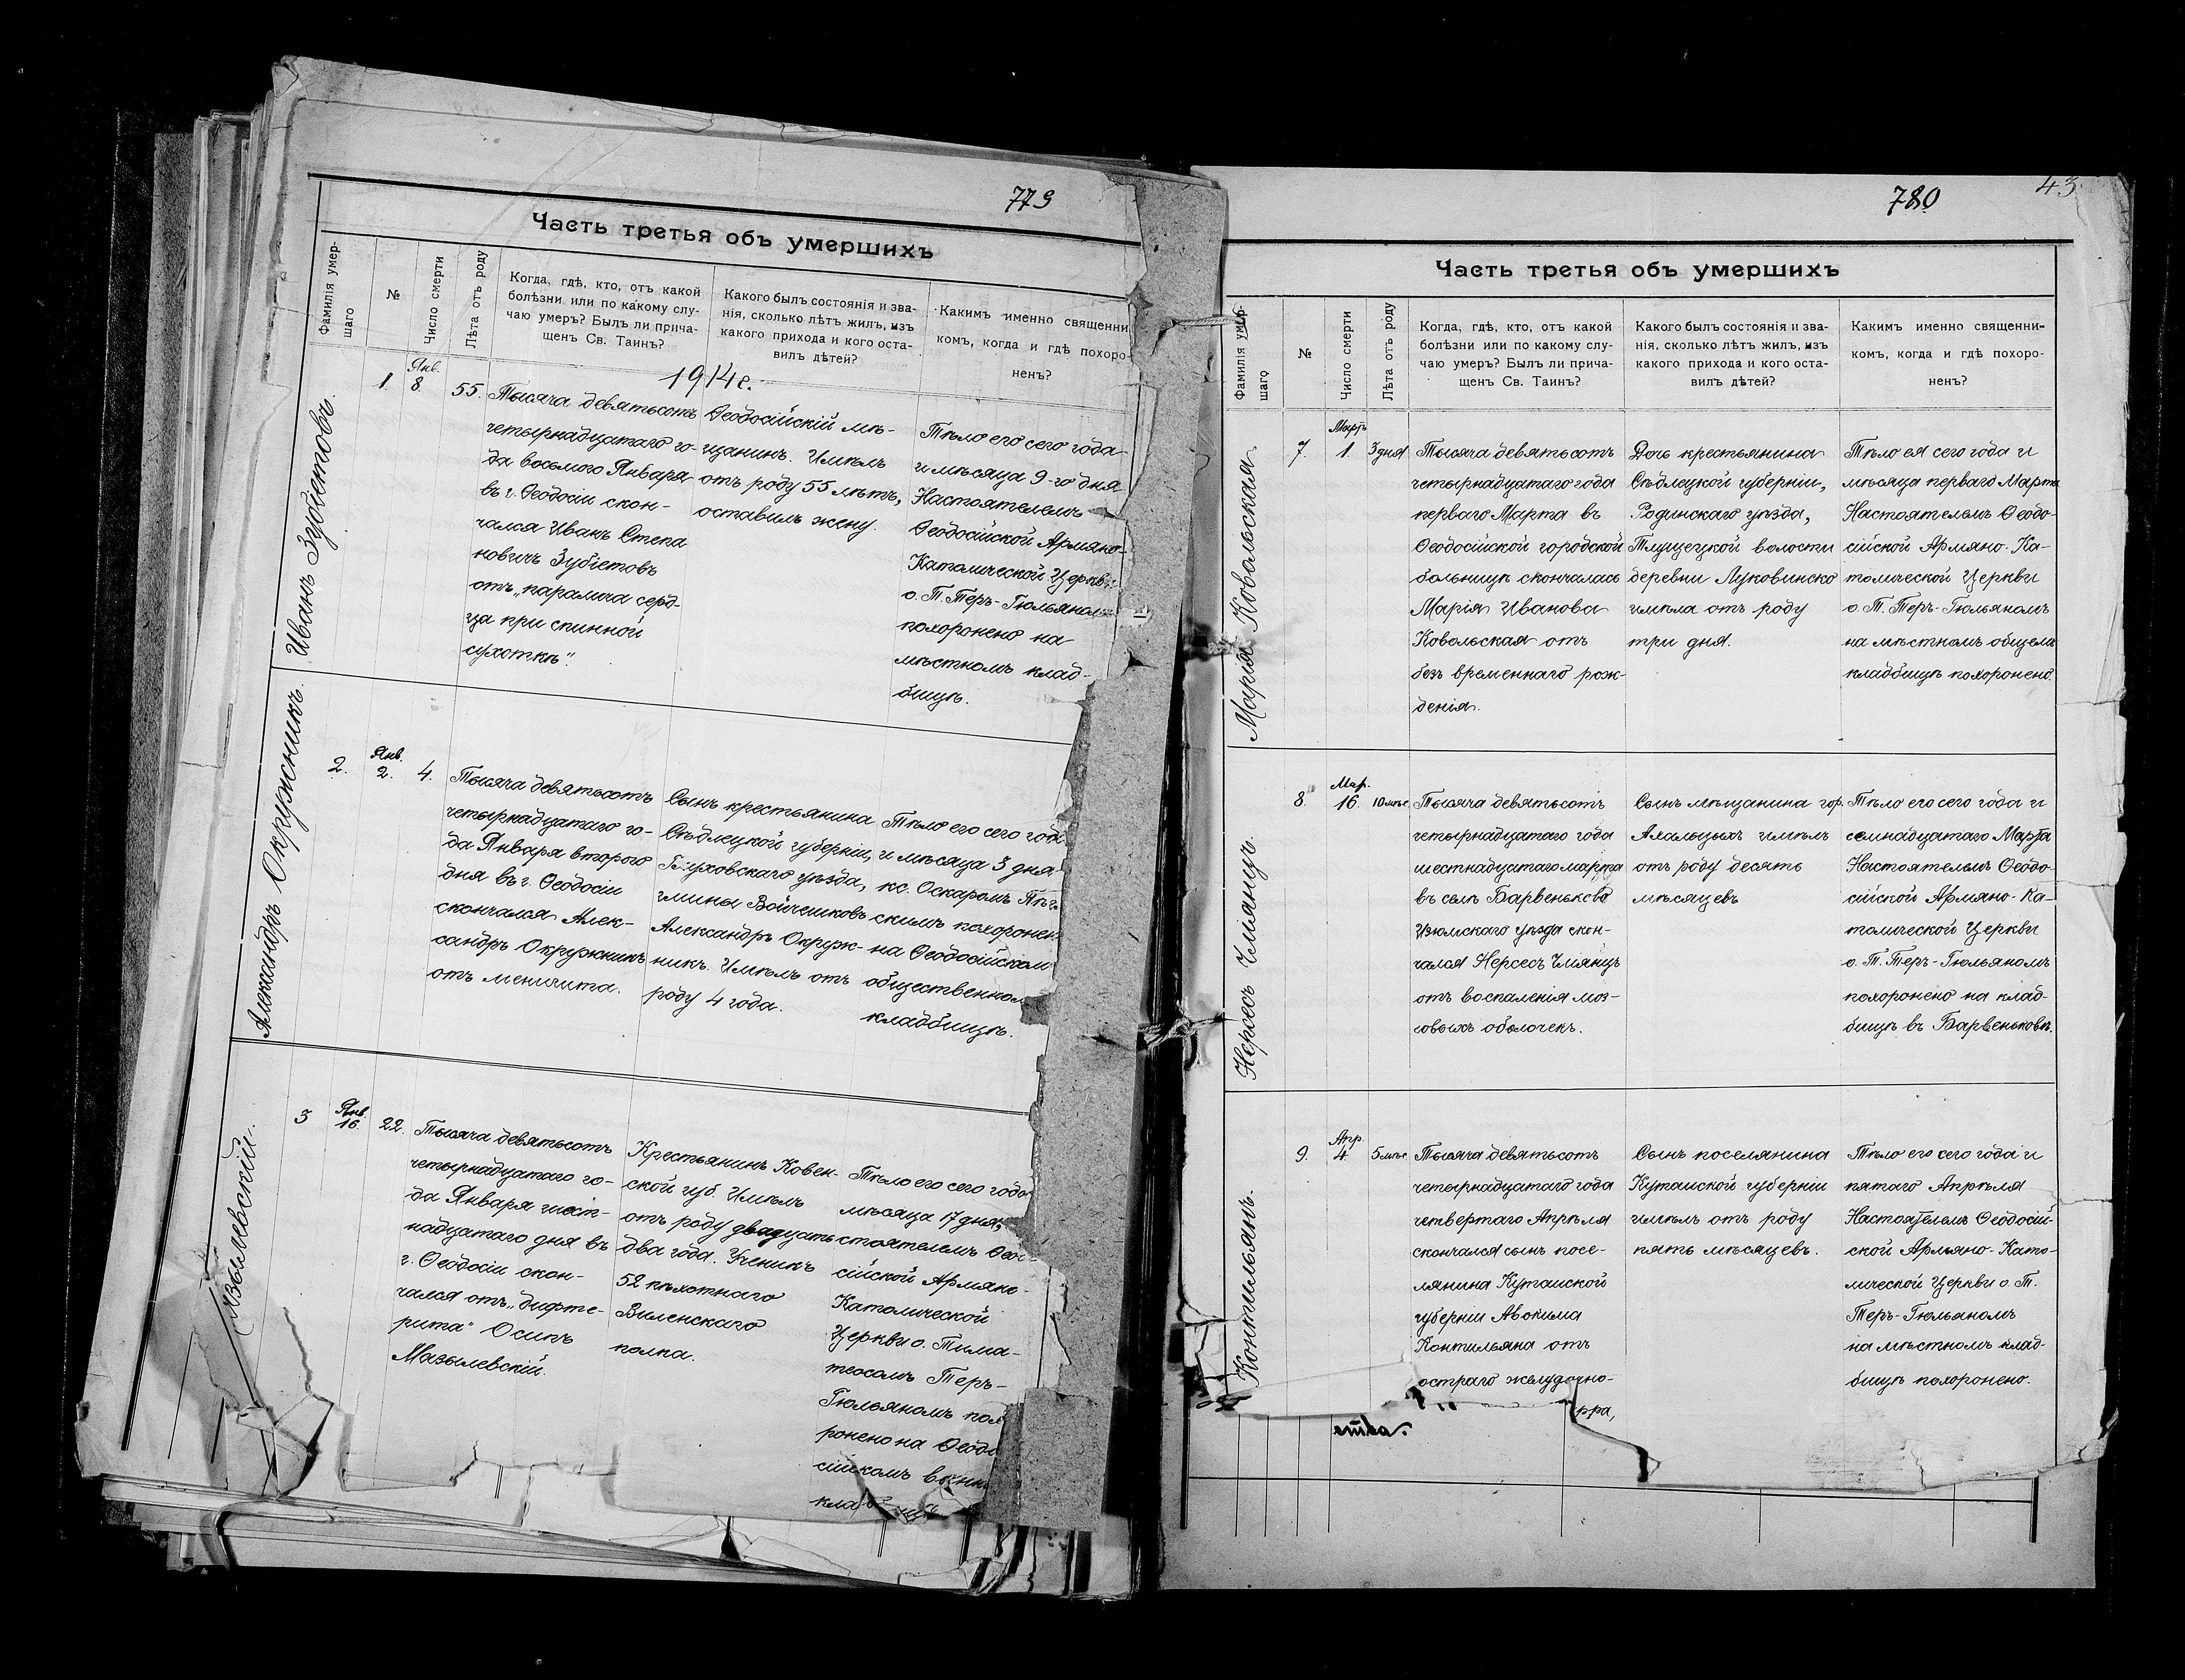 779
Часть третья объ умершихъ
Фамилія умер-
шаго
№
Число смерти
Лѣта отъ роду
Когда, гдѣ, кто, отъ какой
болѣзни или по какому слу-
чаю умеръ? Былъ ли прича-
щенъ Св. Таинъ?
Какого былъ состоянія и зва-
нія, сколько лѣтъ жилъ, изъ
какого прихода и кого оста-
вилъ дѣтей?
Какимъ именно священни
комъ, когда и гдѣ похоро-
ненъ?
1914 г.
Иванъ Зубіетовъ.
1.
Янв.
8.
55.
Тысяча девятьсотъ
четырнадцатаго го-
да восьмого Января
въ г. Ѳеодосіи скон-
чался Иванъ Степа
новичъ Зубіетовъ
отъ „паралича серд-
ца при спинной
сухоткѣ".
Ѳеодосійскій мѣ-
щанинъ. Имѣлъ
отъ роду 55 лѣтъ,
оставилъ жену.
Тѣло его сего года
и мѣсяца 9-го дня
Настоятелемъ
Ѳеодосійской Армяно-
Католической Церкви
о. Т. Теръ-Гюльяномъ
похоронено на
мѣстномъ клад-
бищѣ.
Александръ Окружникъ.
2.
Янв.
2.
4.
Тысяча девятьсотъ
четырнадцатаго го-
да Января второго
дня въ г. Ѳеодосіи
скончался Алек-
сандръ Окружникъ
отъ менигита.
Сынъ крестьянина
Сѣдлецкой губерніи,
уѣзда,
гмины Войчешковъ
Александръ Окруж-
никъ. Имѣлъ отъ
роду 4 года.
Тѣло его сего года
и мѣсяца 3 дня
кс. Оскаромъ
скимъ похоронен
на Ѳеодосійском
общественном
кладбищѣ.
Мазылевскій.
3
Янв.
16.
22.
Тысяча девятьсотъ
четырнадцатаго го-
да Января шест-
надцатаго дня въ
г. Ѳеодосіи скон-
чался отъ „дифте-
рита" Осипъ
Мазылевскій.
Крестьянинъ Ковен-
ской губ. Имѣлъ
отъ роду двадцать
два года. Ученикъ
52 пѣхотнаго
Виленскаго
полка.
Тѣло его сего года
мѣсяца 17 дня,
стоятелемъ Ѳео
сійской Армяно-
Католической
Церкви о. Тима-
теосомъ Теръ-
Гюльяномъ пох
ронено на Ѳеодо
сійскомъ
780
43.
Часть третья объ умершихъ
Фамилія умер-
шаго
№
Число смерти
Лѣта отъ роду
Когда, гдѣ, кто, отъ какой
болѣзни или по какому слу-
чаю умеръ? Былъ ли прича-
щенъ Св. Таинъ?
Какого былъ состоянія и зва-
нія, сколько лѣтъ жилъ, изъ
какого прихода и кого оста-
вилъ дѣтей?
Какимъ именно священни-
комъ, когда и гдѣ похоро-
ненъ?
Марія Ковольская.
7.
Мартъ
1
3 дня
Тысяча девятьсотъ
четырнадцатаго года
перваго Марта въ
Ѳеодосійской городской
больницѣ скончалась
Марія Иванова
Ковольская отъ
безъ временнаго рож-
денія.
Дочь крестьянина
Сѣдлецкой губерніи,
Родинскаго уѣзда,
Тлущецкой волости
деревни Луковинско
имѣла отъ роду
три дня.
Тѣло ея сего года и
мѣсяца перваго Марта
Настоятелемъ Ѳеодо-
сійской Армяно-Ка-
толической Церкви
о. Т. Теръ-Гюльяномъ
на мѣстномъ общемъ
кладбищѣ похоронено.
Нерсесъ Чмянцъ.
8.
Мар.
16.
10 мѣс.
Тысяча девятьсотъ
четырнадцатаго года
шестнадцатаго марта
въ селѣ Барвеньково
Изюмскаго уѣзда скон-
чался Нерсесъ Чмянцъ
отъ воспаленія моз-
говыхъ оболочекъ.
Сынъ мѣщанина гор.
Ахальцыхъ имѣлъ
отъ роду десять
мѣсяцевъ
Тѣло его сего года и
семнадцатаго Марта
Настоятелемъ Ѳеодо-
сійской Армяно-Ка-
толической Церкви
о. Т. Теръ-Гюльяномъ
похоронено на клад-
бищѣ въ Барвеньковѣ.
Контильянъ.
9.
Апр.
4.
5 мѣс.
Тысяча девятьсотъ
четырнадцатаго года
четвертаго Апрѣля
скончался сынъ посе-
лянина Кутаиской
губерніи Авокима
Контильяна отъ
остраго желудочно-
рра,
Сынъ поселянина
Кутаиской губерніи
имѣлъ отъ роду
пять мѣсяцевъ.
Тѣло его сего года и
пятаго Апрѣля
Настоятелемъ Ѳеодосій-
ской Армяно-Като-
лической Церкви о. Т.
Теръ-Гюльяномъ
на мѣстномъ клад-
бищѣ похоронено.